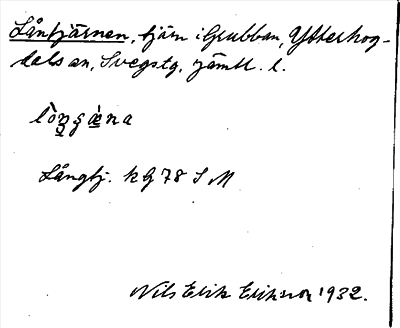 Låntjärnen, tjärn i Grubban, Ytterhog-
dals sn, Svegs tg, Jämtl. l.
Långtj. k G 78 S M
Nils Erik Erikson 1932.